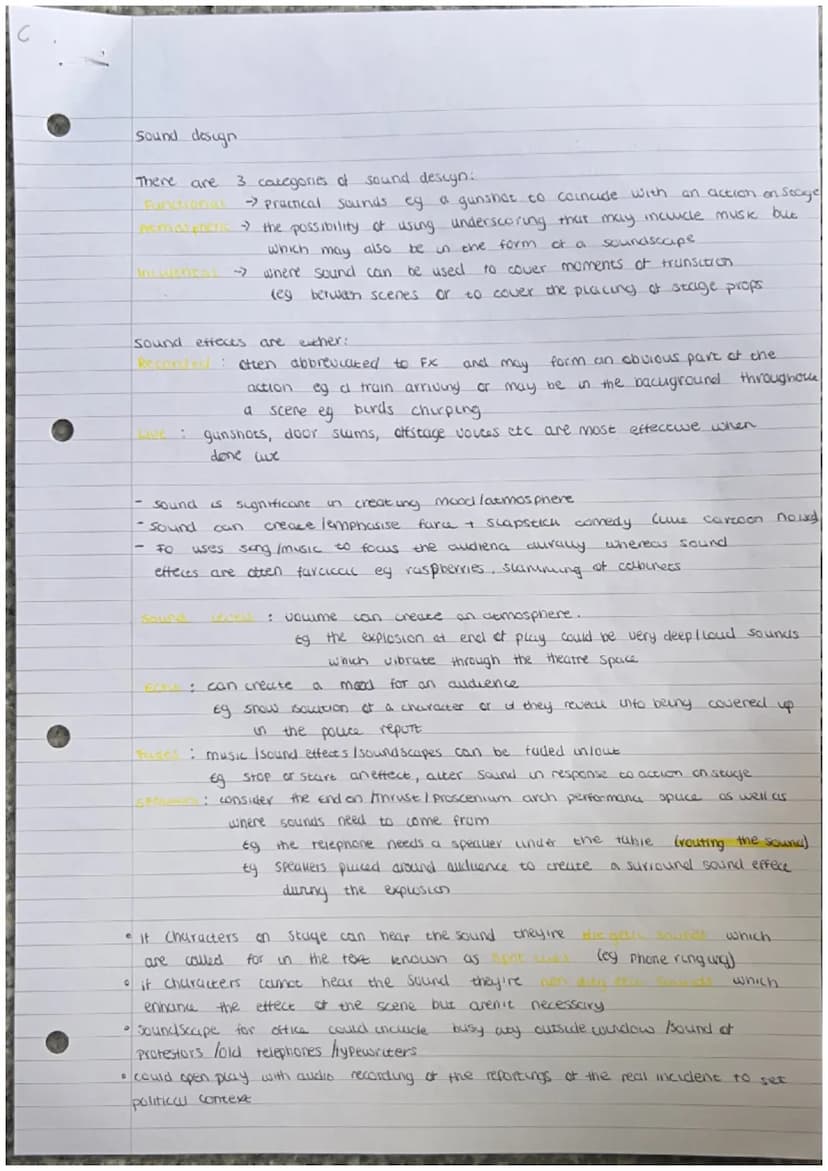 C
Sound design
There are 3 categories of sound design:
Functional → Practical sounds eg a gunshot to coincide with an action on stage
Atmospheric → the possibility of using underscoring that may include music but
which may also be in the form of a soundscape
Incidental → where sound can be used to cover moments of transition
(eg between scenes or to cover the placing of stage props
Sound effects are either:
Recorded : often abbreviated to FX and may form an obvious part of the
action eg a train arriving or may be in the background throughout
a scene eg birds chirping
Live : gunshots, door slams, offstage voices etc are most effective when
done live
- Sound is significant in creating mood/atmosphere
- Sound can create/emphasise farce + slapstick comedy (like cartoon noises)
- Fo uses song/music to focus the audience aurally whereas sound
effects are often farcical eg raspberries, slamming of cabinets
Sound level : volume can create an atmosphere.
Eg the explosion at end of play could be very deep/loud sounds
which vibrate through the theatre space
Echo : can create a mood for an audience
Eg show isolation of a character or if they reveal info being covered up
in the police report
Fades : music/sound effects/soundscapes can be faded in/out
Eg stop or start an effect, alter sound in response to action on stage
Speakers : consider the end on/thrust/proscenium arch performance space as well as
where sounds need to come from
Eg the telephone needs a speaker under the table (routing the sound)
Eg speakers placed around audience to create a surround sound effect
during the explosion
• If characters on stage can hear the sound they're diegetic sounds which
are called for in the text known as spot cues (eg phone ringing)
• if characters cannot hear the sound they're non diegetic sounds which
enhance the effect of the scene but aren't necessary
• Soundscape for office could include busy city outside window/sound of
protestors/old telephones/typewriters
• Could open play with audio recording of the reportings of the real incident to set
political context